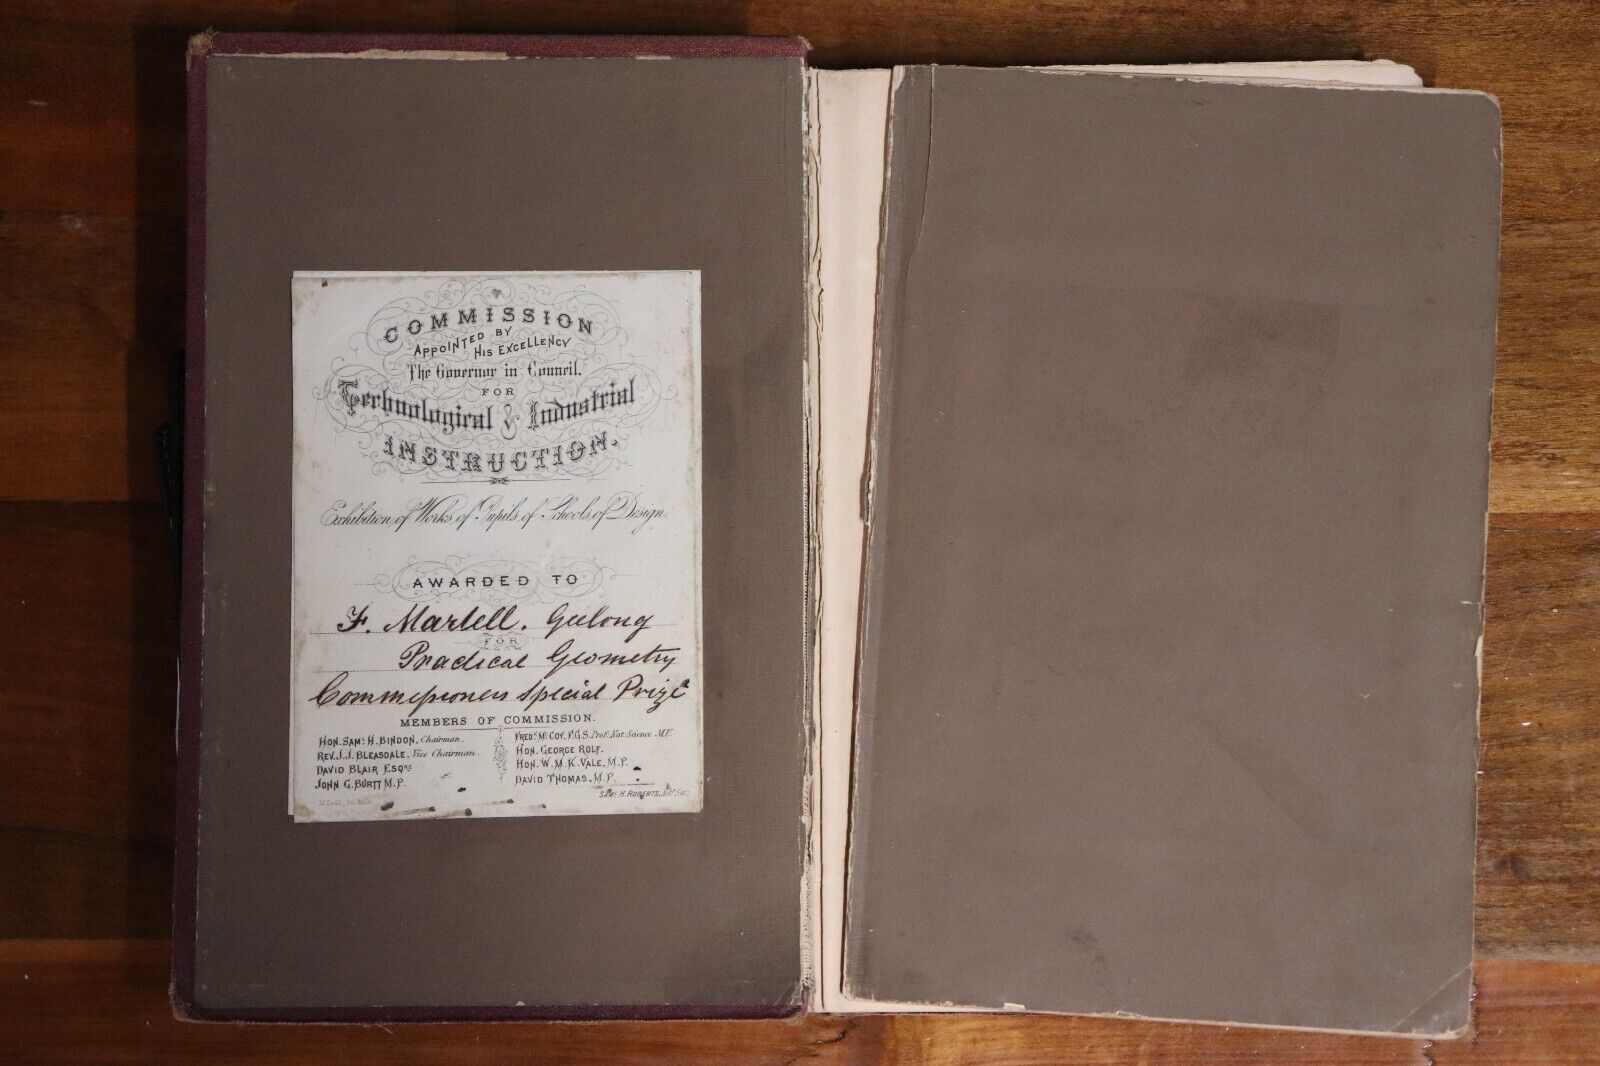 COMMISSION
APPOINTED BY
HIS EXCELLENCY
The Governor in Council.
FOR
Technological & Industrial
INSTRUCTION.
Exhibition of Works of Pupils of Schools of Design.
AWARDED TO
F. Martell. Geelong
FOR
Practical Geometry
Commissioners Special Prize
MEMBERS OF COMMISSION.
HON. SAML. H. BINDON, Chairman.
REV. J. J. BLEASDALE, Vice Chairman.
DAVID BLAIR ESQRE
JOHN G. BURTT M.P.
FREDK. McCOY, F.G.S. Prof. Nat. Science M.U.
HON. GEORGE ROLF.
HON. W. M. K. VALE, M.P.
DAVID THOMAS, M.P.
H. ROBERTS,